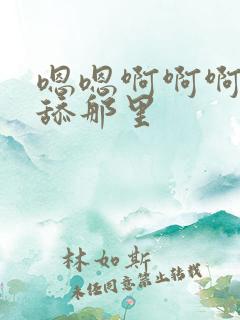 嗯嗯啊啊啊
舔那里
林如斯
未经同意禁止转载